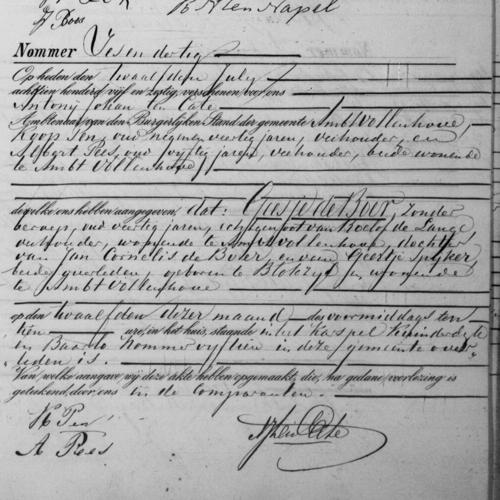 Zj Boes
B H ten Napel
Nommer Zesendertig
Op heden den twaalfden July
achttien honderd vijf en zestig, verschenen voor ons
Antony Johan ten Cate
Ambtenaar van den Burgerlijken Stand der gemeente Ambt Vollenhove,
oud negenenveertig jaren, veehouder, en
Albert Pees, oud vyftig jaren, veehouder, beide wonende
te Ambt Vollenhove
dewelke ons hebben aangegeven, dat: Geesje de Boer, zonder
beroep, oud veertig jaren, echtgenoot van Roelof de Lange
veehouder, wonende te Ambt Vollenhove, dochter
van Jan Cornelis de Boer, en van Geertje
beide overleden, geboren te Blokzyl en wonende
te Ambt Vollenhove
op den twaalfden dezer maand des voormiddags ten
uure, in het huis, staande in het karspel
in Baarlo nommer vyftien in deze gemeente over-
leden is.
Van welke aangave wij deze akte hebben opgemaakt, die, na gedane voorlezing is
geteekend door ons en de comparanten.
A Pees
AJ ten Cate